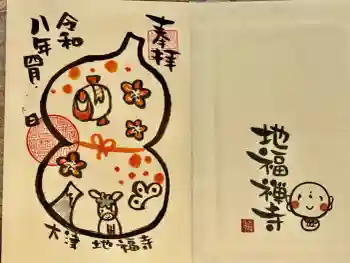 奉拝
令和
八年四月 日
大津 地福寺
地福禅寺